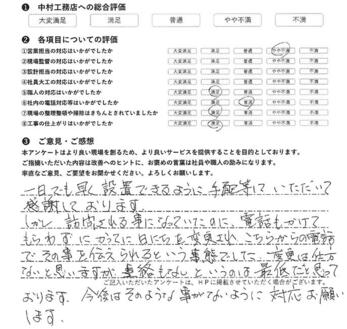 ❶ 中村工務店への総合評価
大変満足 満足 普通 やや不満 不満
❷ 各項目についての評価
①営業担当の対応はいかがでしたか 大変満足 満足 普通 やや不満 不満
②現場監督の対応はいかがでしたか 大変満足 満足 普通 やや不満 不満
③設計担当の対応はいかがでしたか 大変満足 満足 普通 やや不満 不満
④社員大工の対応はいかがでしたか 大変満足 満足 普通 やや不満 不満
⑤職人の対応はいかがでしたか 大変満足 満足 普通 やや不満 不満
⑥社内の電話対応等はいかがでしたか 大変満足 満足 普通 やや不満 不満
⑦現場の整理整頓や掃除はきちんとされていましたか 大変満足 満足 普通 やや不満 不満
⑧工事の仕上がりはいかがでしたか 大変満足 満足 普通 やや不満 不満
❸ ご意見・ご感想
本アンケートはより良い現場を創るため、より良いサービスを提供することを目的としております。
ご指摘いただいた内容は改善へのヒントに、お褒めの言葉は社員や職人の励みになります。
率直なご意見、ご要望をお聞かせください。よろしくお願いします。
一日でも早く設置できるように手配等していただいて
感謝しております。
しかし訪問される事になっていたのに、電話もかけて
もらわずにかってに日にちを変更され、こちらからの電話
でその事を伝えられるという事態でした。変更は仕方
ないと思いますが連絡もなしというのは最低だと思って
ご記入いただいたアンケートは、HPに掲載させていただく場合がございます。
おります。今後はそのような事がないように対応お願い
します。